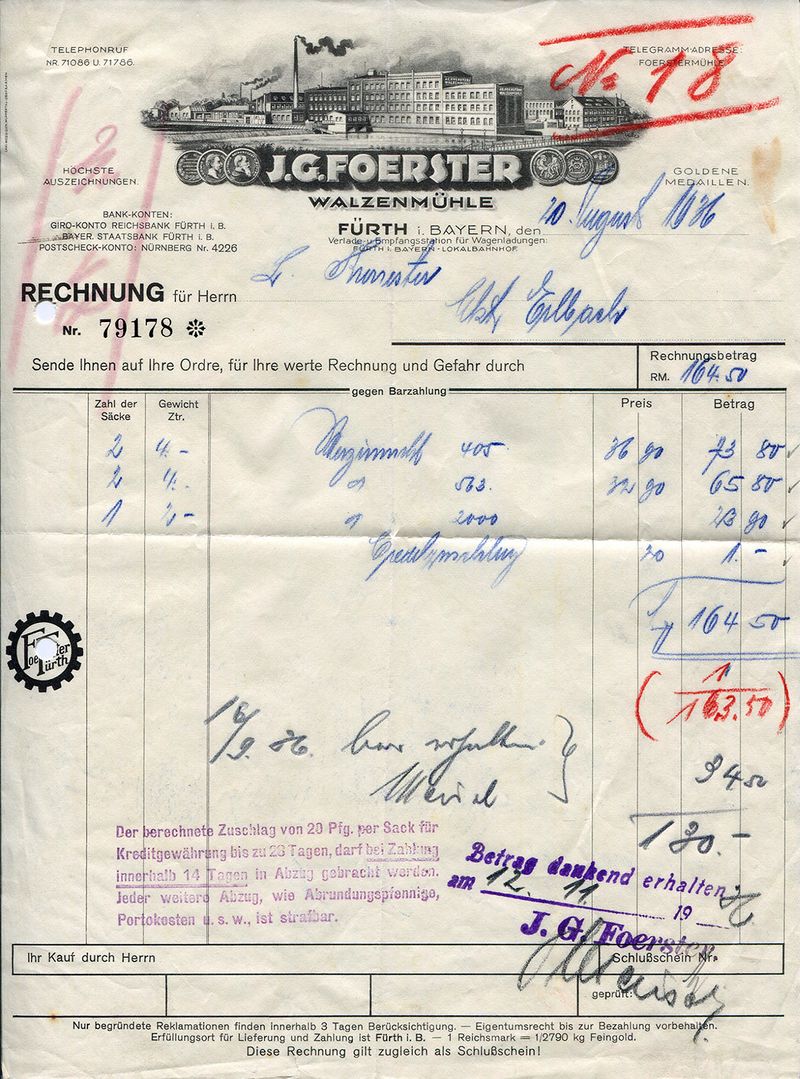 TELEPHONRUF
NR. 71086 U. 71786.
TELEGRAMMADRESSE:
FOERSTERMÜHLE
No 18
HÖCHSTE
AUSZEICHNUNGEN.
J.G.FOERSTER
WALZENMÜHLE
GOLDENE
MEDAILLEN.
BANK-KONTEN:
GIRO-KONTO REICHSBANK FÜRTH i. B.
BAYER. STAATSBANK FÜRTH i. B.
POSTSCHECK-KONTO: NÜRNBERG Nr. 4226
FÜRTH i. BAYERN, den 20. August 1936
Verlade- u. Empfangsstation für Wagenladungen:
FÜRTH i. BAYERN - LOKALBAHNHOF.
RECHNUNG für Herrn L.
Nr. 79178
Sende Ihnen auf Ihre Ordre, für Ihre werte Rechnung und Gefahr durch
Rechnungsbetrag
RM. 164.50
gegen Barzahlung
Zahl der Säcke Gewicht Ztr. Preis Betrag
2 4.- 405 36 90 73 80
2 4.- 563. 32 90 65 80
1 2- 2000 23 90
20 1.-
164 50
1
(163.50)
Foerster Fürth
16/9. 36. bar erhalten
34 50
130.-
Der berechnete Zuschlag von 20 Pfg. per Sack für
Kreditgewährung bis zu 28 Tagen, darf bei Zahlung
innerhalb 14 Tagen in Abzug gebracht werden.
Jeder weitere Abzug, wie Abrundungspfennige,
Portokosten u. s. w., ist strafbar.
Betrag dankend erhalten
am 12. 11. 19 36
J. G. Foerster
Ihr Kauf durch Herrn
Schlußschein Nr.
geprüft:
Nur begründete Reklamationen finden innerhalb 3 Tagen Berücksichtigung. — Eigentumsrecht bis zur Bezahlung vorbehalten.
Erfüllungsort für Lieferung und Zahlung ist Fürth i. B. — 1 Reichsmark = 1/2790 kg Feingold.
Diese Rechnung gilt zugleich als Schlußschein!